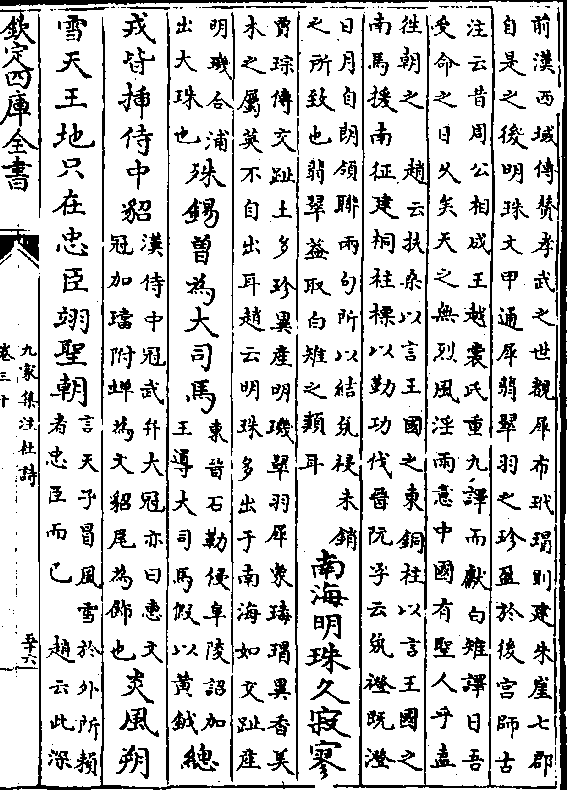 前漢西域傳贊孝武之世覩犀布玳瑁則建朱崖七郡
自是之後明珠文甲通犀翡翠羽之珍盈於後宮師古
注云昔周公相成王越裳氏重九譯而獻白雉譯曰吾
受命之日久矣天之無烈風淫雨意中國有聖人乎盍
徃朝之 趙云扶桑以言王國之東銅柱以言王國之
南馬援南征建祠柱標以勤功伐晉阮孚云氛祲既澄
日月自朗領聯兩句所以結氛祲未銷
之所致也翡翠蓋取白雉之類耳
南海明珠久寂寥
賈琮傳交趾土多珍異産明璣翠羽犀象瑇瑁異香美
木之屬莫不自出耳趙云明珠多出于南海如交趾産
明璣合浦
出大珠也
殊錫曽為大司馬
東晉石勒侵阜陵詔加
王導大司馬假以黄鉞
總
戎皆揷侍中貂
漢侍中冠武弁大冠亦曰惠文
冠加璫附蟬為文貂尾為飾也
炎風朔
雪天王地只在忠臣翊聖朝
言天子冒風雪於外所賴
者忠臣而已 趙云此深
欽定四庫全書
九家集注杜詩
卷三十
五十六